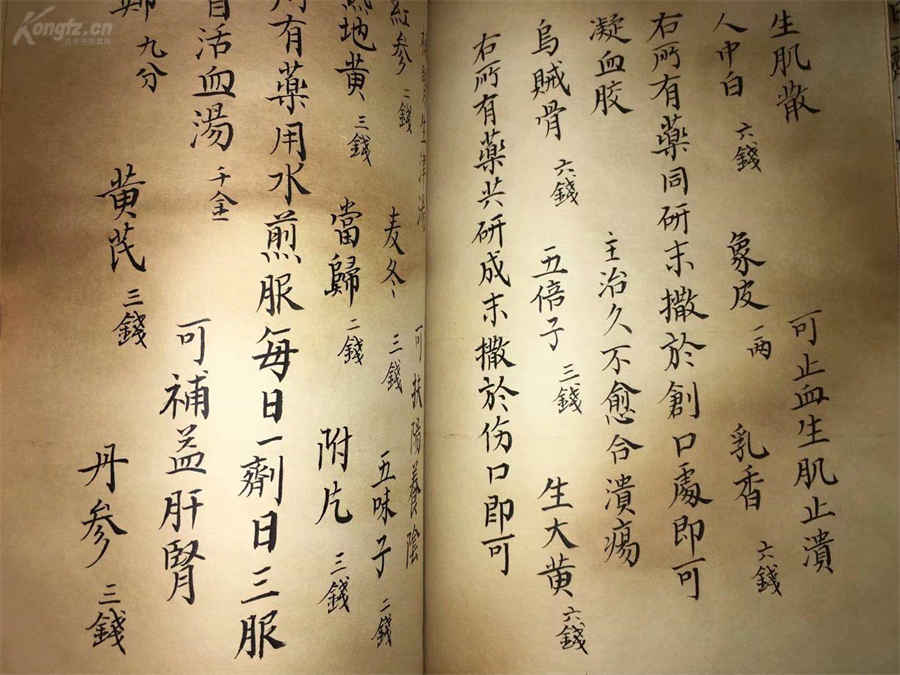 生肌散 可止血生肌止潰
人中白 六錢 象皮 一兩 乳香 六錢
右所有藥同研末撒於創口處即可
凝血胶 主治久不愈合潰瘍
烏贼骨 六錢 五倍子 三錢 生大黄 六錢
右所有藥共研成末撒於伤口即可
可扶陽養陰
紅参 二錢 麦冬 三錢 五味子 二錢
地黄 三錢 當歸 二錢 附片 三錢
有藥用水煎服每日一劑日三服
活血湯 千金 可補益肝腎
九分 黄芪 三錢 丹参 三錢
Kongfz.cn